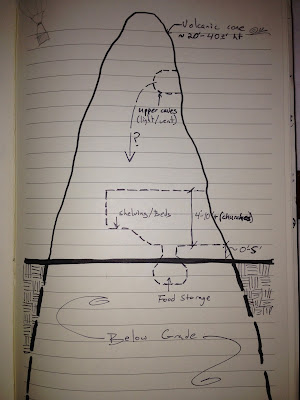 Volcanic cone
~ 20'-40±' ht
upper caves
(light/vent)
?
shelving/Beds
4'-10'+ (churches)
~ 0-5'
Food Storage
Below Grade